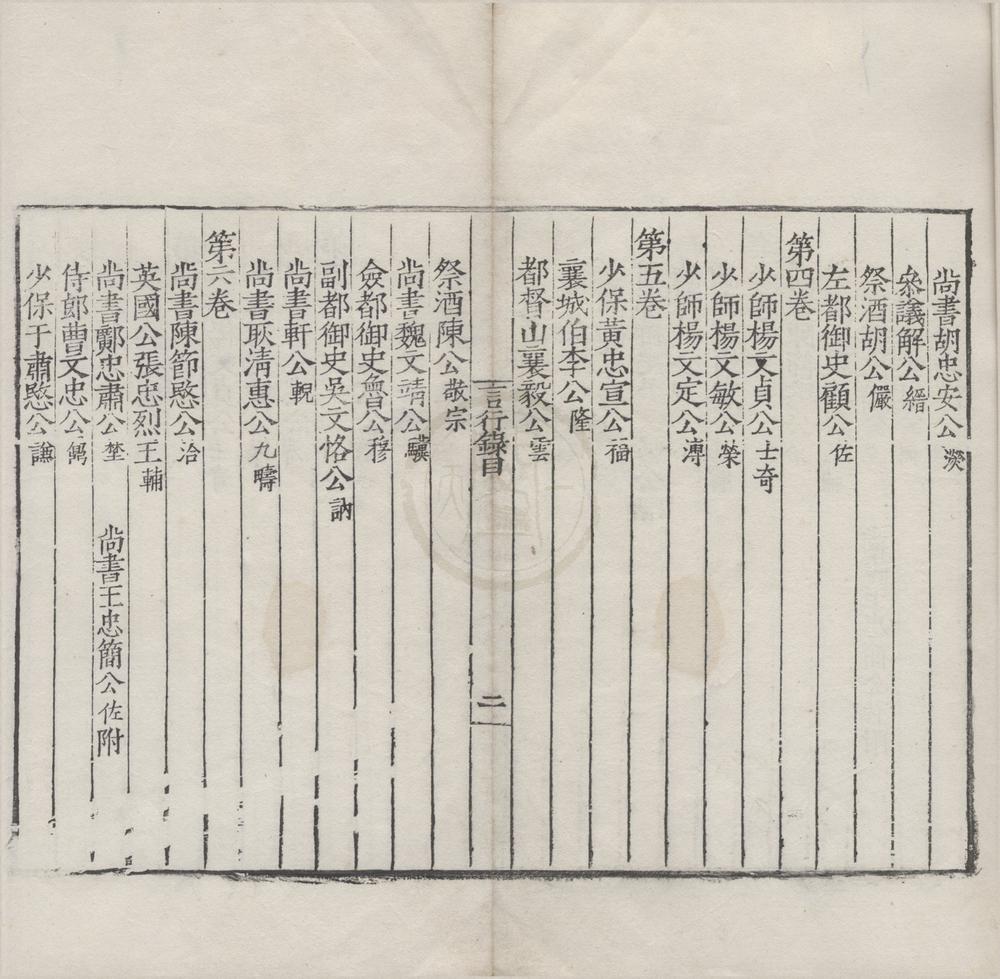 尚書胡忠安公濙
參議解公縉
祭酒胡公儼
左都御史顧公佐
第四卷
少師楊文貞公士奇
少師楊文敏公榮
少師楊文定公溥
第五卷
少保黃忠宣公福
襄城伯李公隆
都督山襄毅公雲
言行錄目
二
祭酒陳公敬宗
尚書魏文靖公驥
僉都御史魯公穆
副都御史吳文恪公訥
尚書軒公輗
尚書耿清惠公九疇
第六卷
尚書陳節愍公洽
英國公張忠烈王輔
尚書鄺忠肅公埜 尚書王忠簡公佐附
侍郎曹文忠公鼐
少保于肅愍公謙